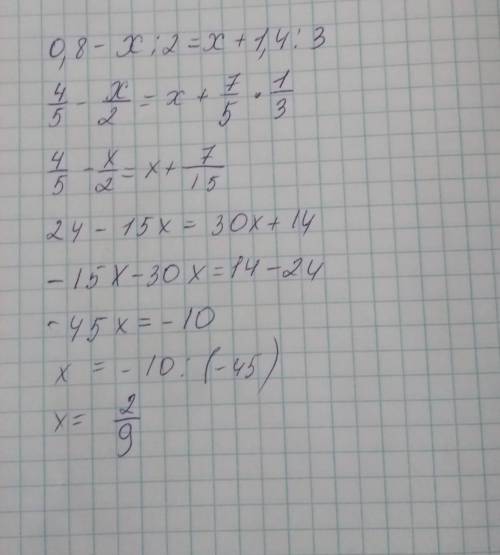 0,8 - x : 2 = x + 1,4 : 3
4/5 - x/2 = x + 7/5 · 1/3
4/5 - x/2 = x + 7/15
24 - 15x = 30x + 14
-15x - 30x = 14 - 24
-45x = -10
x = -10 : (-45)
x = 2/9